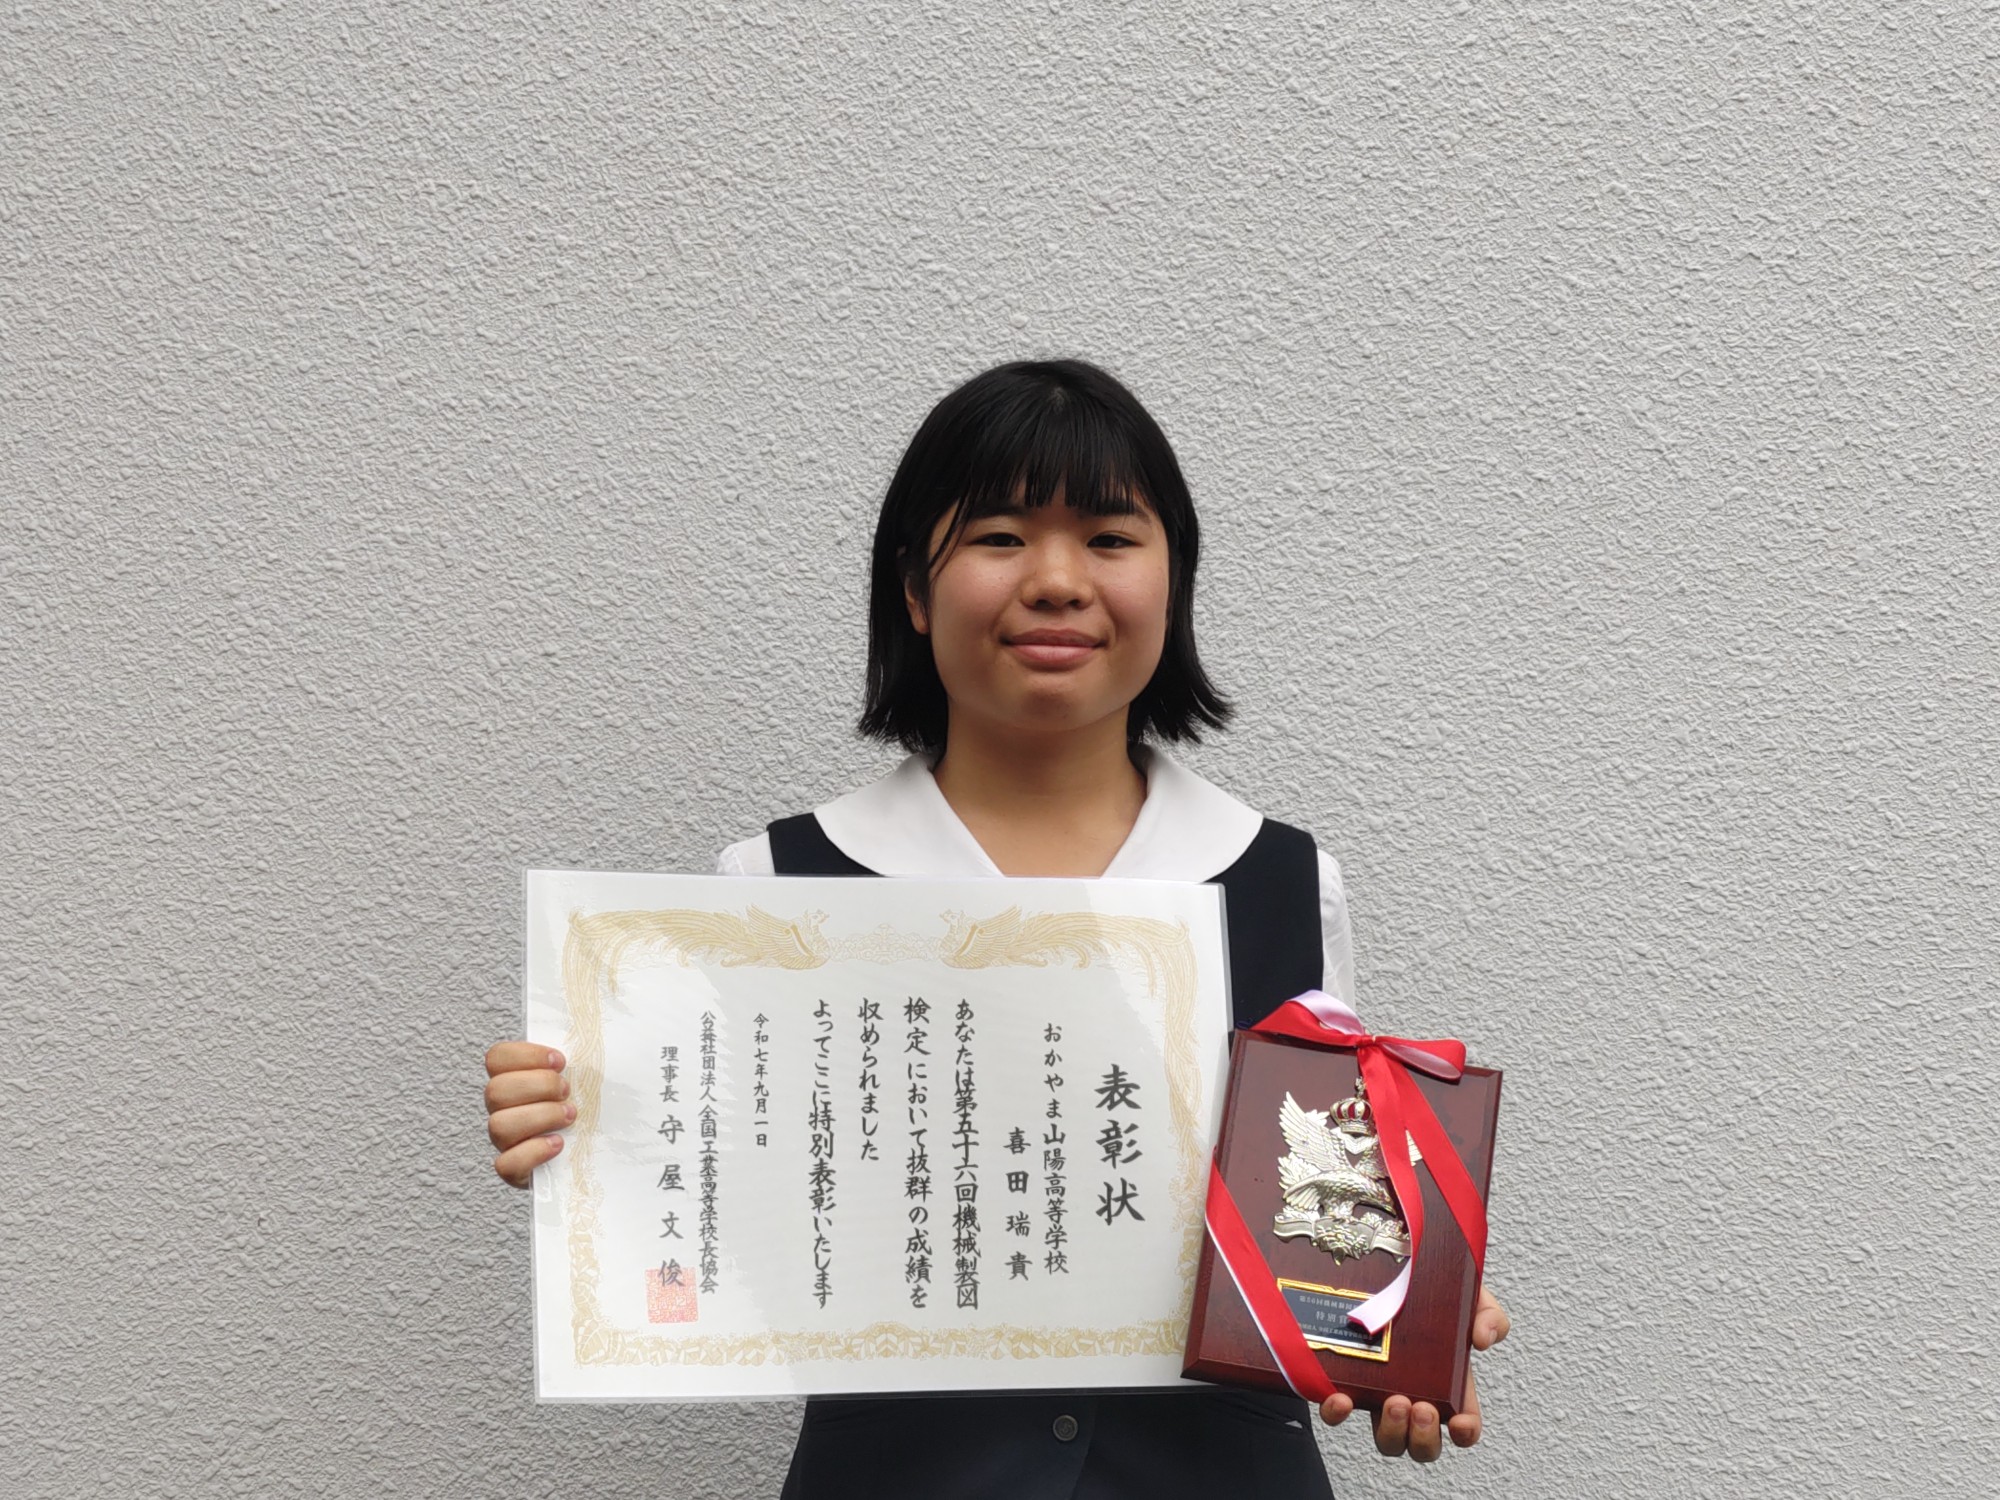 表彰状
おかやま山陽高等学校
喜田瑞貴
あなたは第五十六回機械製図
検定において抜群の成績を
収められました
よってここに特別表彰いたします
令和七年九月一日
公益社団法人 全国工業高等学校長協会
理事長 守屋文俊
第56回機械製図
特別